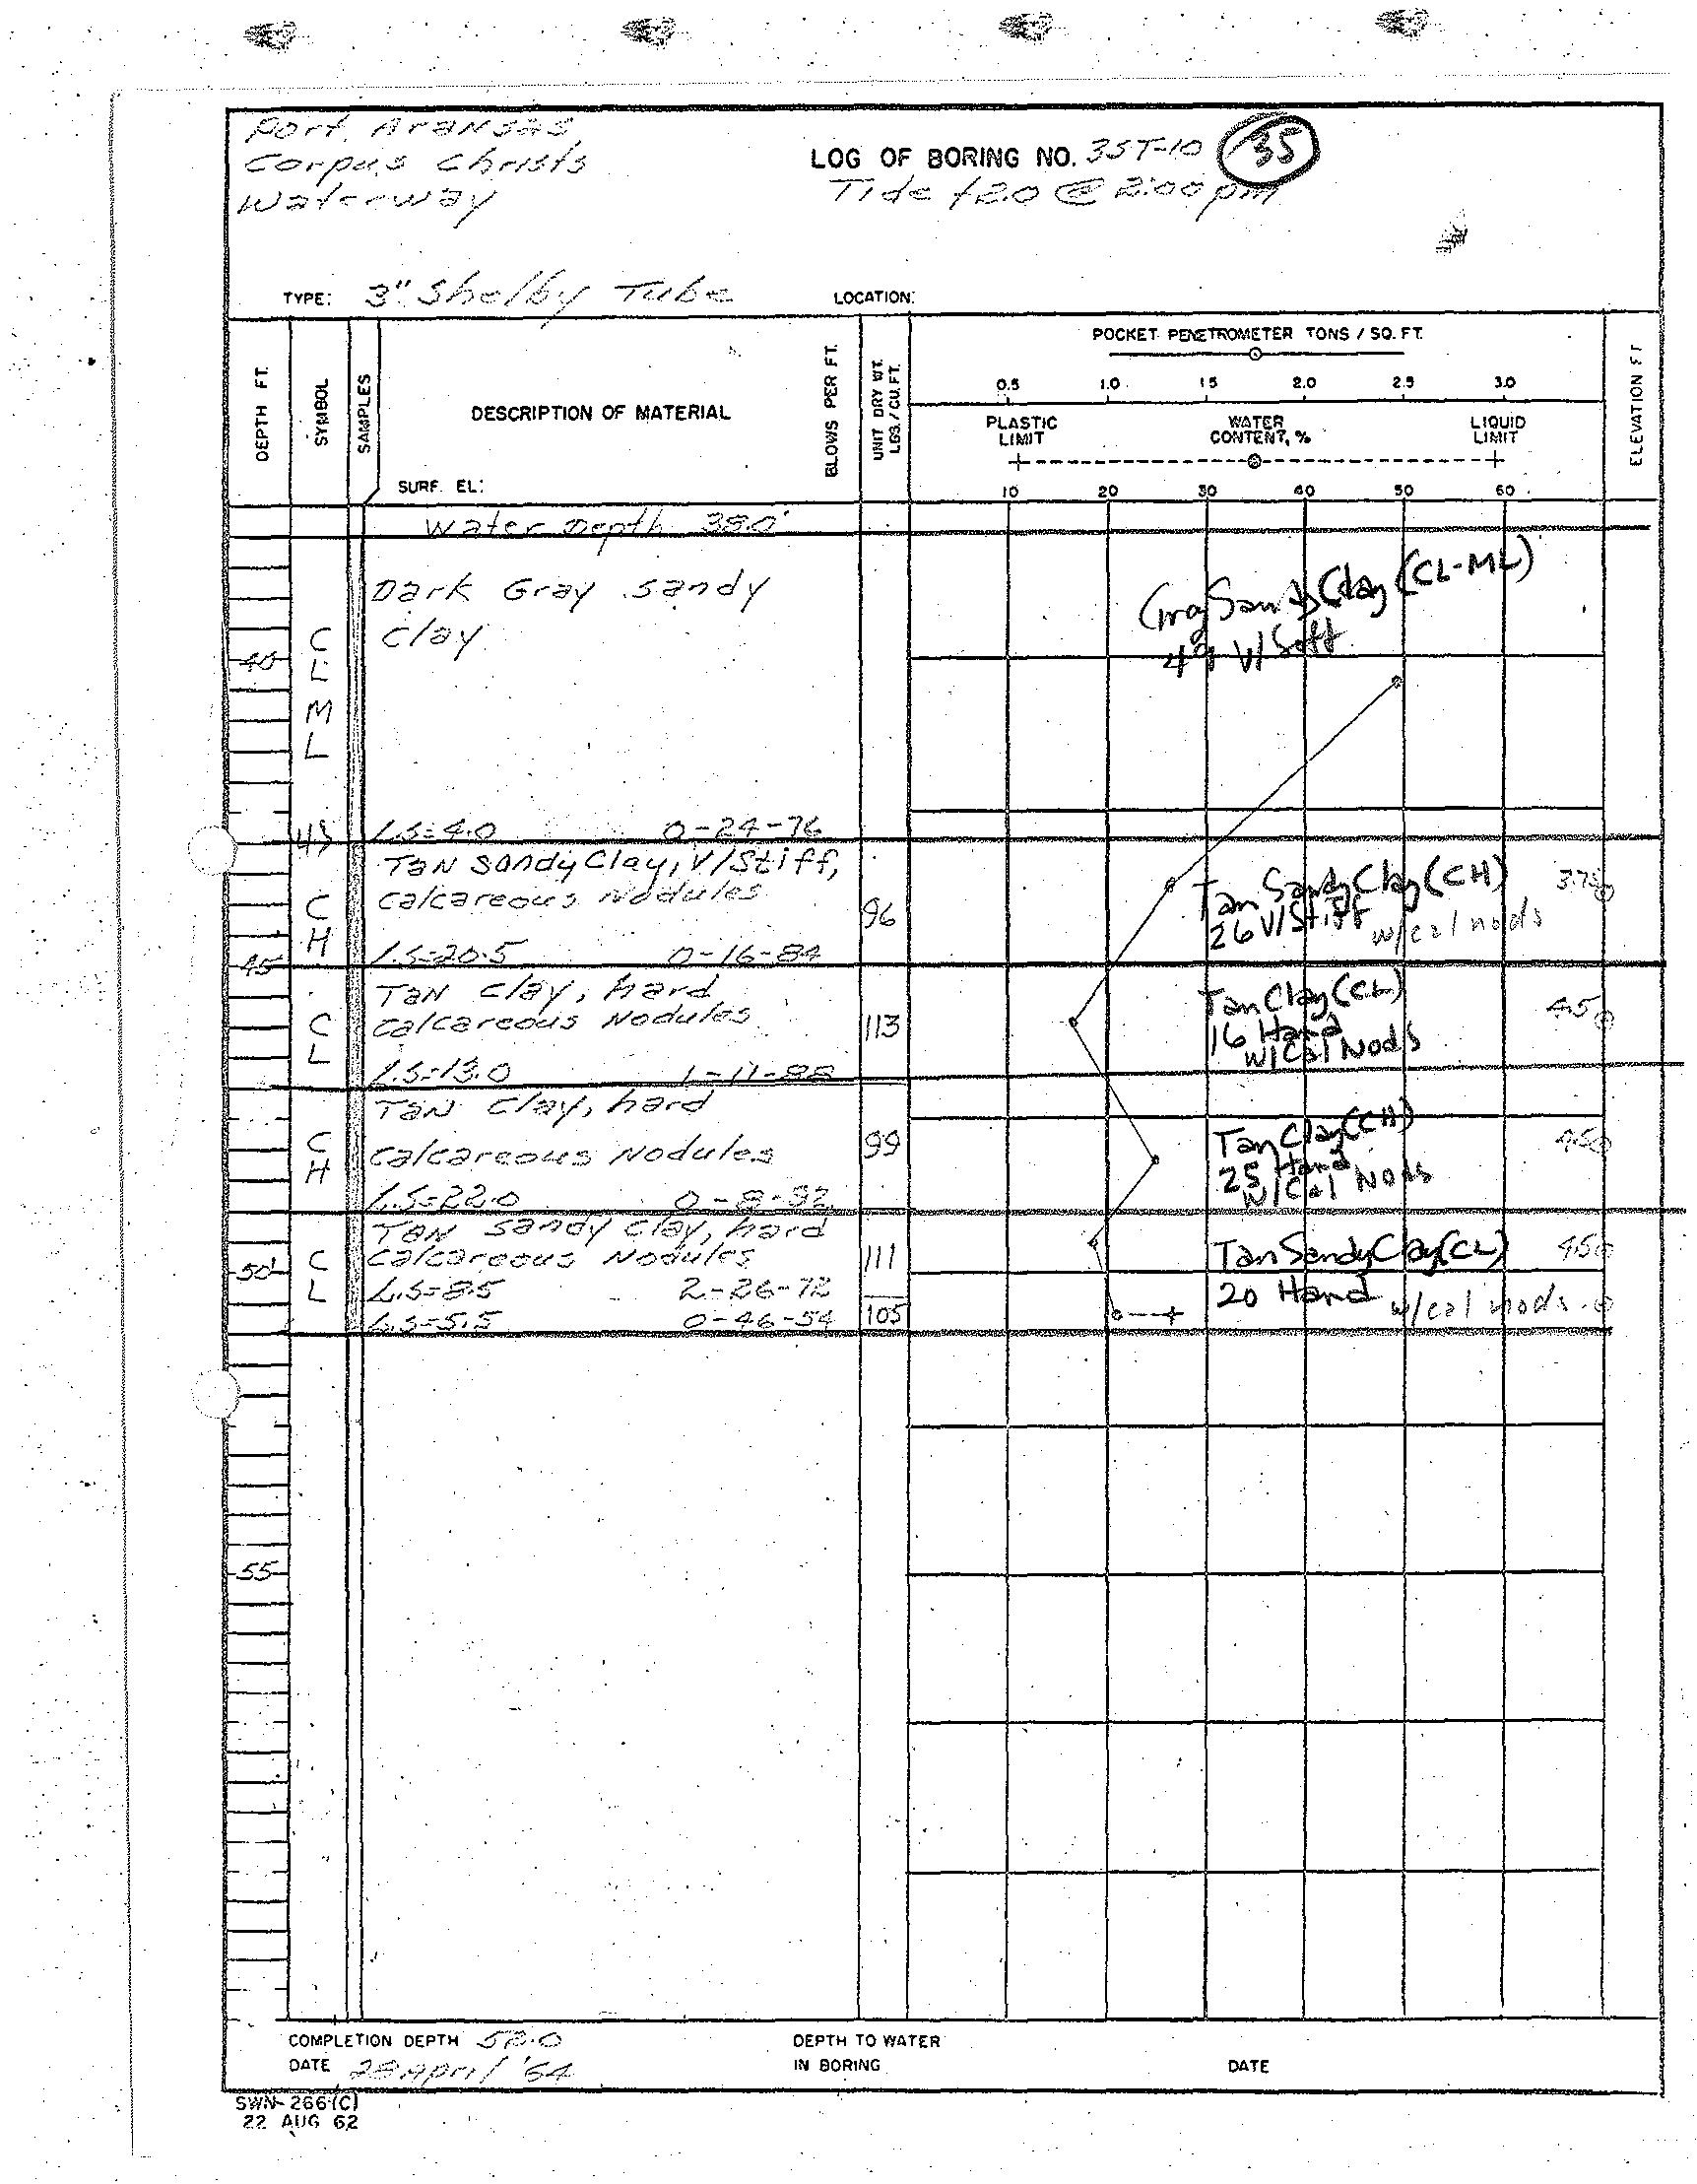 Port Aransas
Corpus Christi
Waterway
LOG OF BORING NO. 3ST-10 35
Tide +2.0 @ 2:00 pm
TYPE: 3" Shelby Tube
LOCATION:
DEPTH FT.
SYMBOL
SAMPLES
DESCRIPTION OF MATERIAL
SURF. EL:
BLOWS PER FT.
UNIT DRY WT. LBS. / CU. FT.
POCKET PENETROMETER TONS / SQ. FT.
0.5 1.0 1.5 2.0 2.5 3.0
PLASTIC LIMIT
WATER CONTENT, %
LIQUID LIMIT
10 20 30 40 50 60
ELEVATION FT
Water Depth 38.0'
Dark Gray sandy
clay
40
CL
ML
Gray Sandy Clay (CL-ML)
49 V/Soft
L.S=4.0 0-24-76
Tan Sandy Clay, V/Stiff,
calcareous Nodules
CH
96
Tan Sandy Clay (CH) 3.75
26 V/Stiff w/cal nods
L.S=20.5 0-16-84
45
Tan clay, hard
calcareous Nodules
CL
113
Tan Clay (CL) 4.5
16 Hard
w/Cal Nods
L.S=13.0 1-11-88
Tan clay, hard
calcareous Nodules
CH
99
Tan Clay (CH) 4.5
25 Hard
w/Cal Nods
L.S=22.0 0-8-92
Tan sandy clay, hard
calcareous Nodules
50
CL
111
Tan Sandy Clay (CL) 4.5
20 Hard w/cal nods.
L.S=8.5 2-26-72
L.S=5.5 0-46-54 105
55
COMPLETION DEPTH 52.0
DATE 28 April '64
DEPTH TO WATER
IN BORING
DATE
SWN-266(C)
22 AUG 62